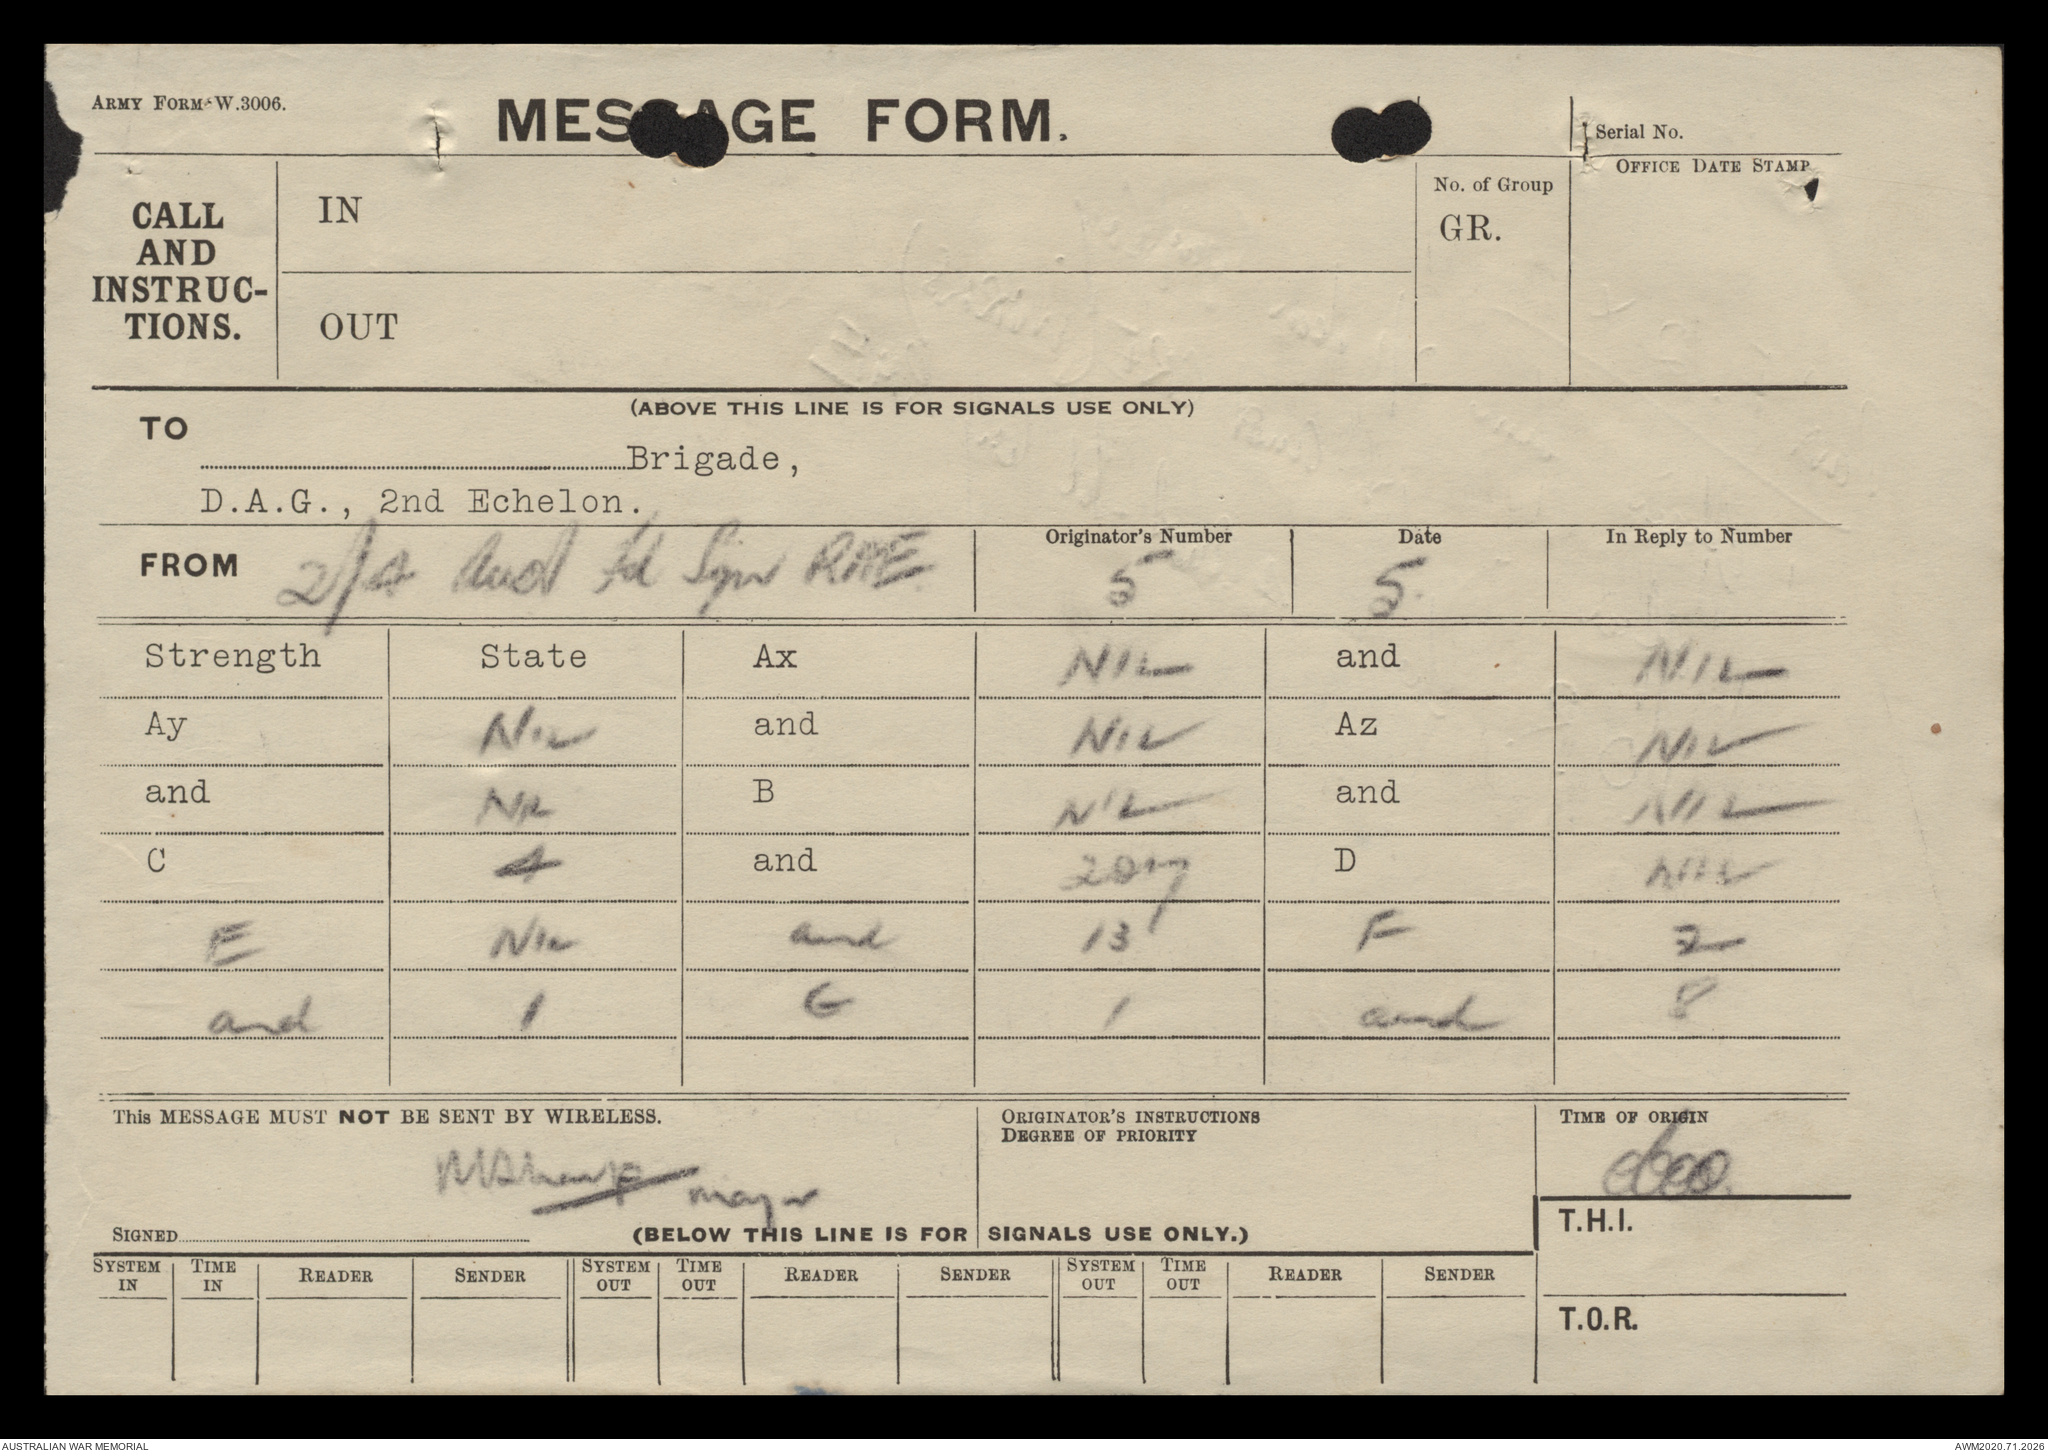 ARMY FORM W.3006.
MESSAGE FORM.
Serial No.
CALL AND INSTRUC-TIONS.
IN
No. of Group
GR.
OFFICE DATE STAMP
OUT
(ABOVE THIS LINE IS FOR SIGNALS USE ONLY)
TO
Brigade,
D.A.G., 2nd Echelon.
FROM 2/4 Aust Fd Sqn RAE
Originator's Number 5
Date 5
In Reply to Number
Strength State Ax NIL and NIL
Ay NIL and NIL Az NIL
and NIL B NIL and NIL
C 4 and 207 D NIL
E NIL and 13 F 2
and 1 G 1 and 8
This MESSAGE MUST NOT BE SENT BY WIRELESS.
ORIGINATOR'S INSTRUCTIONS
DEGREE OF PRIORITY
TIME OF ORIGIN
major
SIGNED
(BELOW THIS LINE IS FOR SIGNALS USE ONLY.)
T.H.I.
SYSTEM IN TIME IN READER SENDER SYSTEM OUT TIME OUT READER SENDER SYSTEM OUT TIME OUT READER SENDER
T.O.R.
AUSTRALIAN WAR MEMORIAL
AWM2020.71.2026